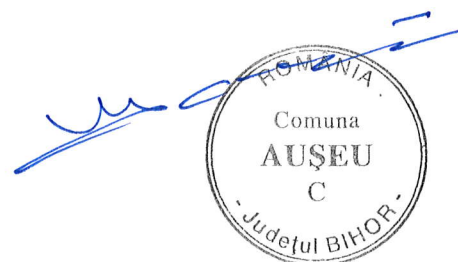 ROMANIA
Comuna
AUŞEU
C
- Judeţul BIHOR -